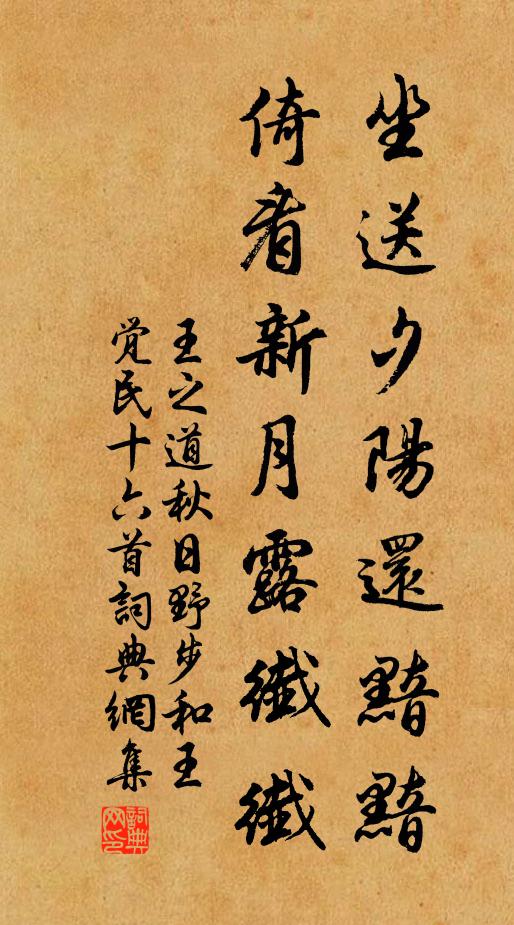 坐送夕陽還黯黯
倚看新月露纖纖
王之道秋日野步和王
覚民十六首詞典網集
詞典网印